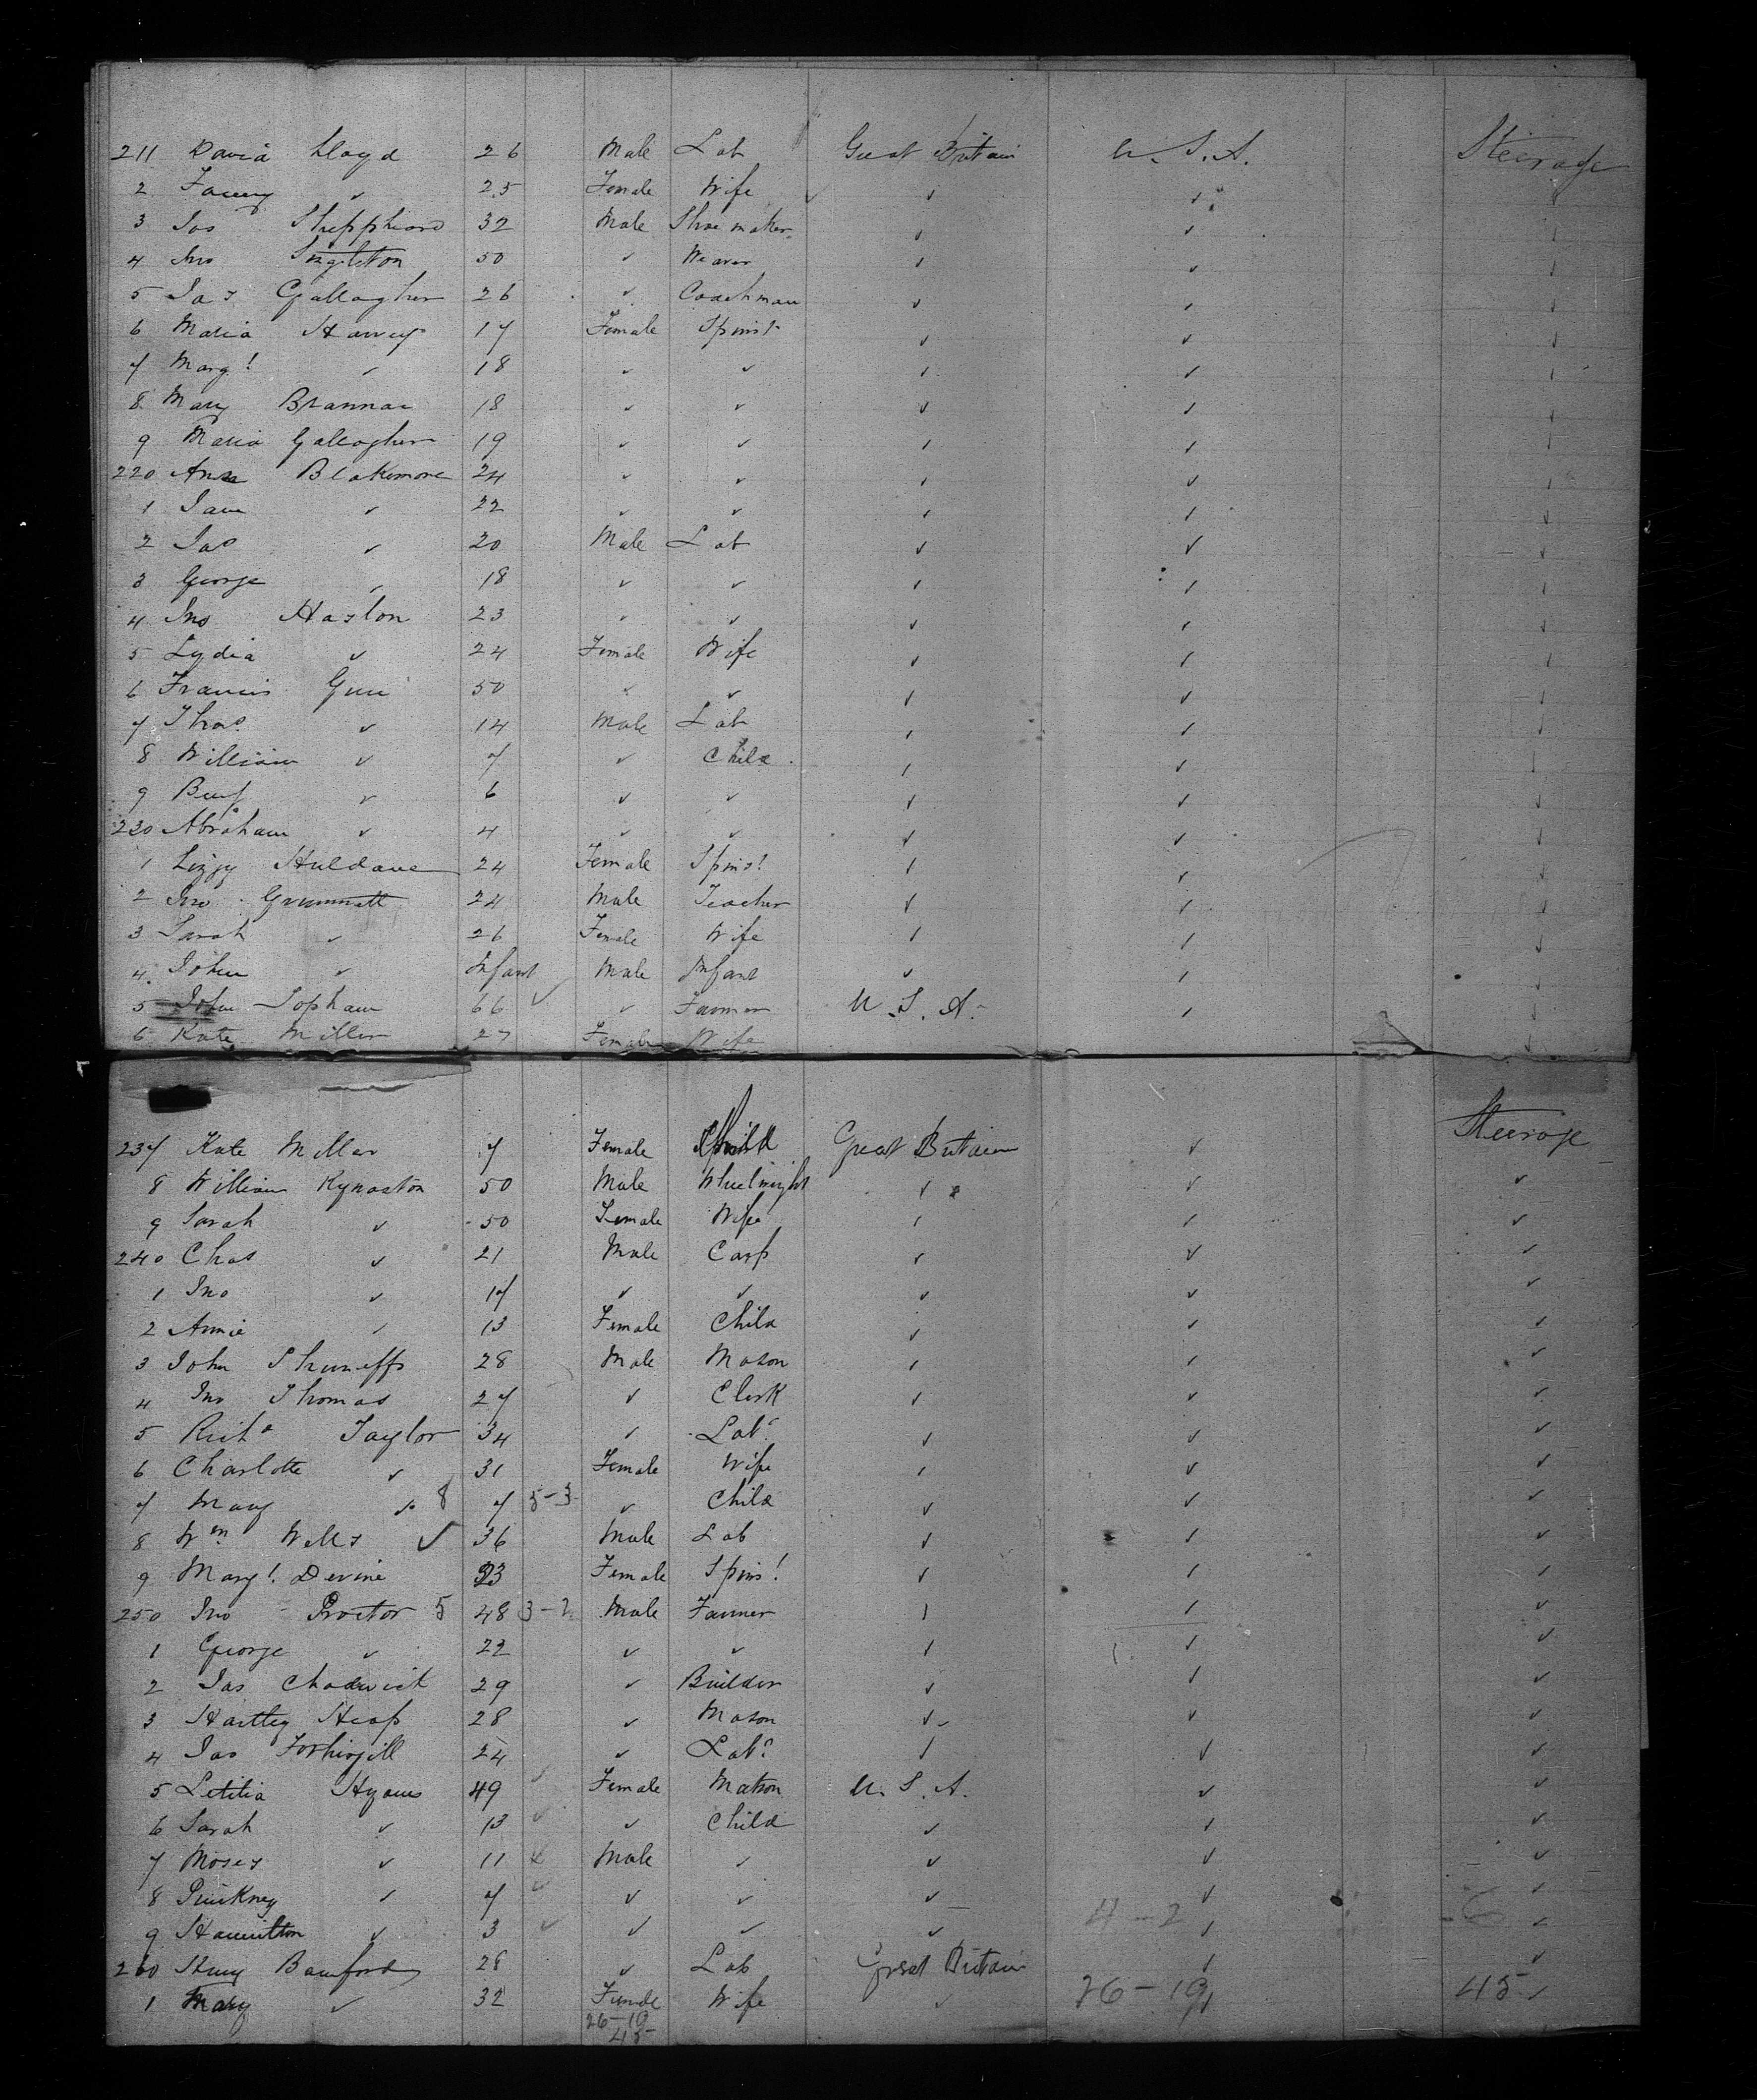 211 David Lloyd 26 Male Lab Great Britain U.S.A. Steerage
2 Fanny ✓ 25 Female Wife ✓ ✓
3 Jas Sheppheard 32 Male Shoemaker ✓ ✓
4 Jno Singleton 50 ✓ Weaver ✓ ✓
5 Jas Gallagher 26 ✓ Coachman ✓ ✓
6 Maria Harvey 17 Female Spinst ✓ ✓
7 Margt ✓ 18 ✓ ✓ ✓ ✓
8 Mary Brannan 18 ✓ ✓ ✓ ✓
9 Maria Gallagher 19 ✓ ✓ ✓ ✓
220 Ann Blakemore 24 ✓ ✓ ✓ ✓
1 Jane ✓ 22 ✓ ✓ ✓ ✓
2 Jas ✓ 20 Male Lab ✓ ✓
3 George ✓ 18 ✓ ✓ ✓ ✓
4 Jno Haslon 23 ✓ ✓ ✓ ✓
5 Lydia ✓ 24 Female Wife ✓ ✓
6 Francis 50 ✓ ✓ ✓ ✓
7 Thos ✓ 14 Male Lab ✓ ✓
8 William ✓ 7 ✓ Child ✓ ✓
9 Benj ✓ 6 ✓ ✓ ✓ ✓
230 Abraham ✓ 4 ✓ ✓ ✓ ✓
1 Lizzy Huldane 24 Female Spinst ✓ ✓
2 Jno Grummatt 24 Male Teacher ✓ ✓
3 Sarah ✓ 26 Female Wife ✓ ✓
4 John ✓ Infant Male Infant ✓ ✓
5 John Topham 66 ✓ ✓ Farmer U.S.A. ✓
6 Kate Miller 27 Female Wife
237 Kate Miller 7 Female Child Great Britain ✓ Steerage
8 William Kynaston 50 Male Wheelwright ✓ ✓ ✓
9 Sarah ✓ 50 Female Wife ✓ ✓ ✓
240 Chas ✓ 21 Male Carp ✓ ✓ ✓
1 Jno ✓ 17 ✓ ✓ ✓ ✓ ✓
2 Annie ✓ 13 Female Child ✓ ✓ ✓
3 John 28 Male Mason ✓ ✓ ✓
4 Jno Thomas 27 ✓ Clerk ✓ ✓ ✓
5 Richd Taylor 34 ✓ Labr ✓ ✓ ✓
6 Charlotte ✓ 31 Female Wife ✓ ✓ ✓
7 Mary ✓ 8 7 5-3 ✓ Child ✓ ✓ ✓
8 Wm Wells ✓ 36 Male Lab ✓ ✓ ✓
9 Margt Devine 33 Female Spinst ✓ ✓ ✓
250 Jno Proctor 5 48 3-2 Male Farmer ✓ ✓ ✓
1 George ✓ 22 ✓ ✓ ✓ ✓ ✓
2 Jas Chadwick 29 ✓ Builder ✓ ✓ ✓
3 Hartley Heap 28 ✓ Mason ✓ ✓ ✓
4 Jas Forthingill 24 ✓ Labr ✓ ✓ ✓
5 Letitia Hyams 49 ✓ Female Matron U.S.A. ✓ ✓
6 Sarah ✓ 13 ✓ ✓ Child ✓ ✓ ✓
7 Moses ✓ 11 ✓ Male ✓ ✓ ✓ ✓
8 Pinkney ✓ 7 ✓ ✓ ✓ ✓ ✓ ✓
9 Hamilton ✓ 3 ✓ ✓ ✓ ✓ 4-2 ✓ -6 ✓
260 Henry Bamford 28 ✓ Lab Great Britain ✓ ✓
1 Mary ✓ 32 Female Wife ✓ 26-19 ✓ 45 ✓
26-19
45